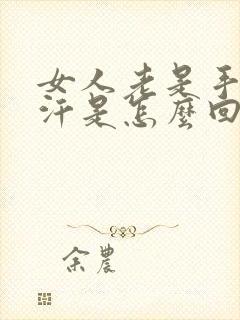 女人老是手
汗是怎麼回
余農